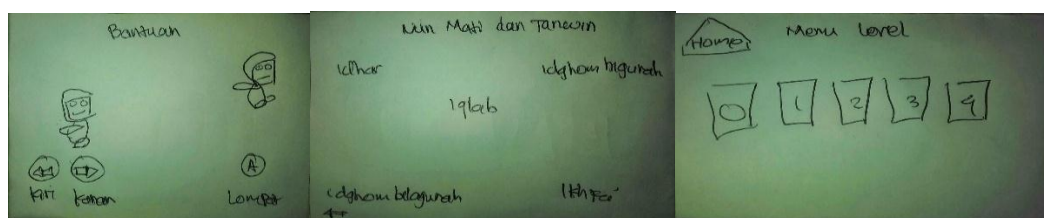 Bantuan
Kiri Kanan
A
Lompat
Nun Mati dan Tanwin
idhar
idghom bigunah
iqlab
idghom bilagunah
Ikhfa'
Home
Menu level
0 1 2 3 4